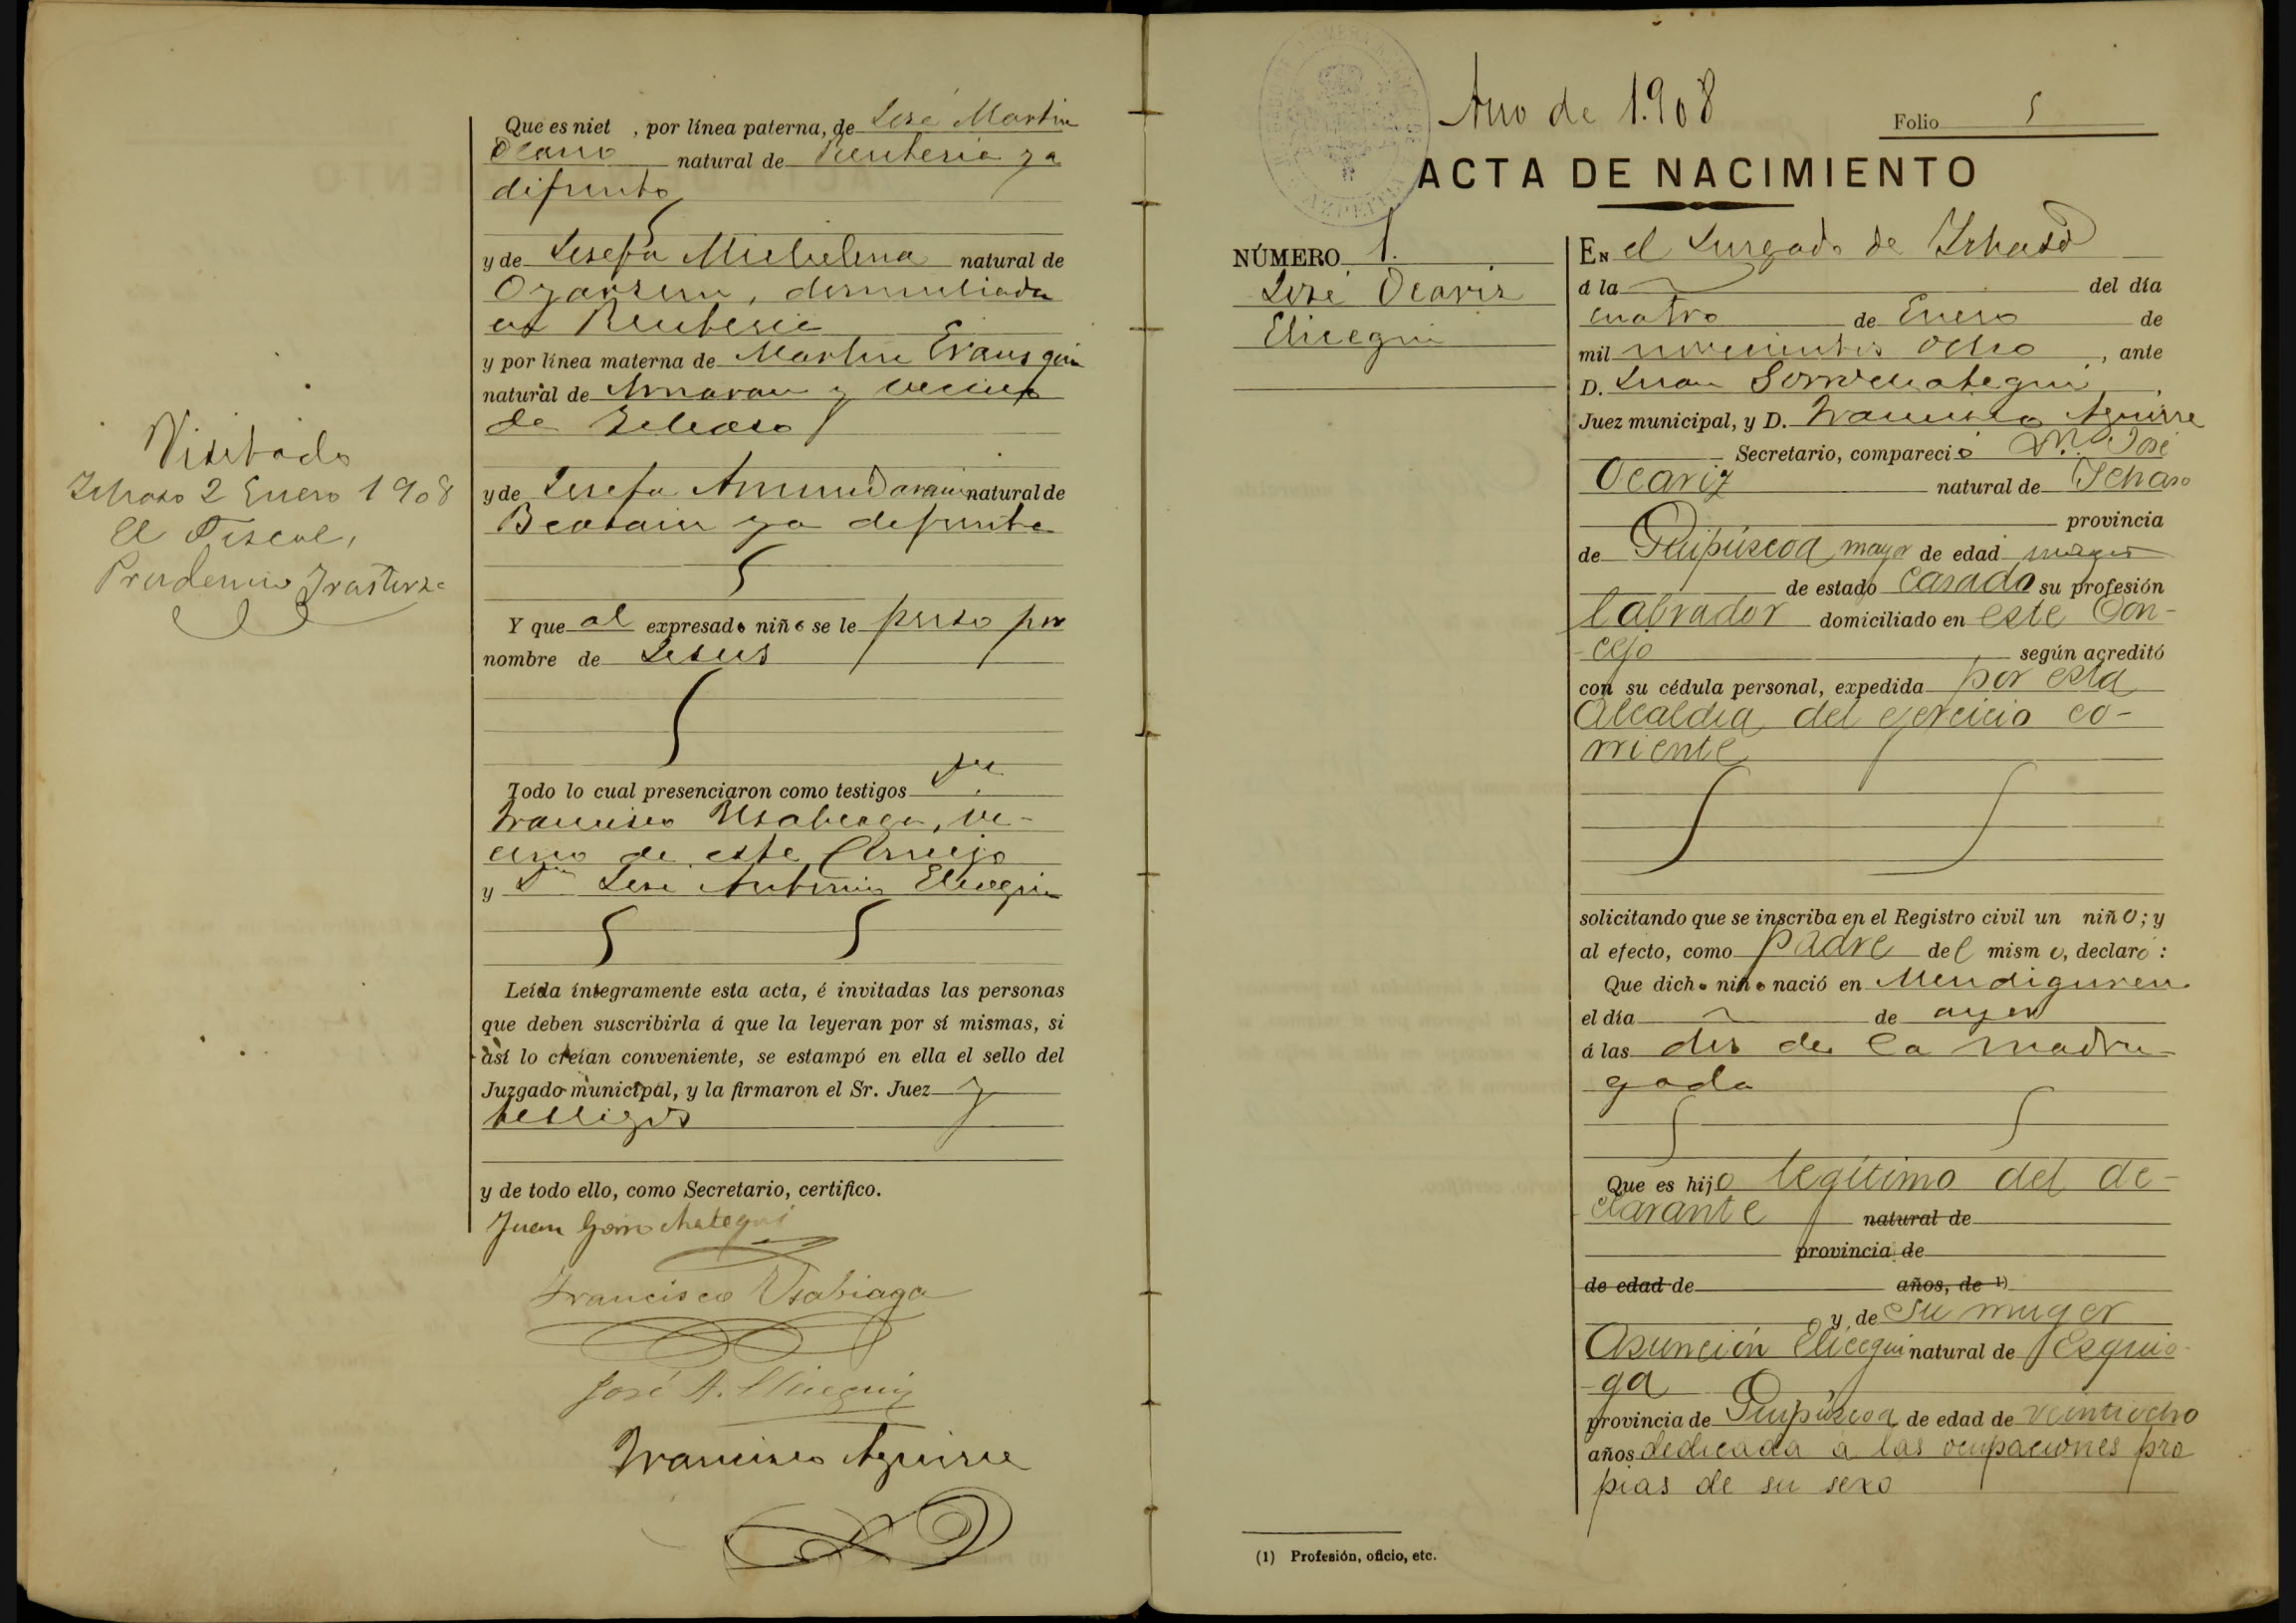 Que es niet , por línea paterna, de José Martin
Olano natural de Renteria ya
difunto
y de Josefa Michelena natural de
Oyarzun, domiciliada
en Renteria
y por línea materna de Martin Erausquin
natural de Amavau y vecino
de Ichaso
y de Josefa Amundarain natural de
Beasain ya difunta
Y que al expresado niño se le puso por
nombre de Jesus
Todo lo cual presenciaron como testigos Dn.
Francisco Usabiaga, ve-
cino de este Concejo
y Dn José Antonio Elicegui
Leída íntegramente esta acta, é invitadas las personas
que deben suscribirla á que la leyeran por sí mismas, si
así lo creían conveniente, se estampó en ella el sello del
Juzgado municipal, y la firmaron el Sr. Juez y
testigos
y de todo ello, como Secretario, certifico.
Juan Gorrochategui
Francisco Usabiaga
José A. Elicegui
Francisco Aguirre
Visitado
Ichaso 2 Enero 1908
El Fiscal,
Prudencio Irastorza
Año de 1.908
Folio 5
ACTA DE NACIMIENTO
NÚMERO 1.
José Ocariz
Elicegui
EN el Juzgado de Ichaso
á la del día
cuatro de Enero de
mil novecientos ocho, ante
D. Juan Gorrochategui,
Juez municipal, y D. Francisco Aguirre
Secretario, compareció Dn. José
Ocariz natural de Ichaso
provincia
de Guipúscoa mayor de edad
de estado casado su profesión
labrador domiciliado en este Con-
cejo según acreditó
con su cédula personal, expedida por esta
Alcaldia del ejercicio co-
rriente
solicitando que se inscriba en el Registro civil un niño; y
al efecto, como padre del mismo, declaró:
Que dicho niño nació en Mendiguren
el día de ayer
á las dos de la madru-
gada
Que es hijo legítimo del de-
clarante natural de
provincia de
de edad de años, de 1)
y de su muger
Asunción Elicegui natural de Esquio-
ga
provincia de Guipúscoa de edad de veintiocho
años dedicada a las ocupaciones pro
pias de su sexo
(1) Profesión, oficio, etc.